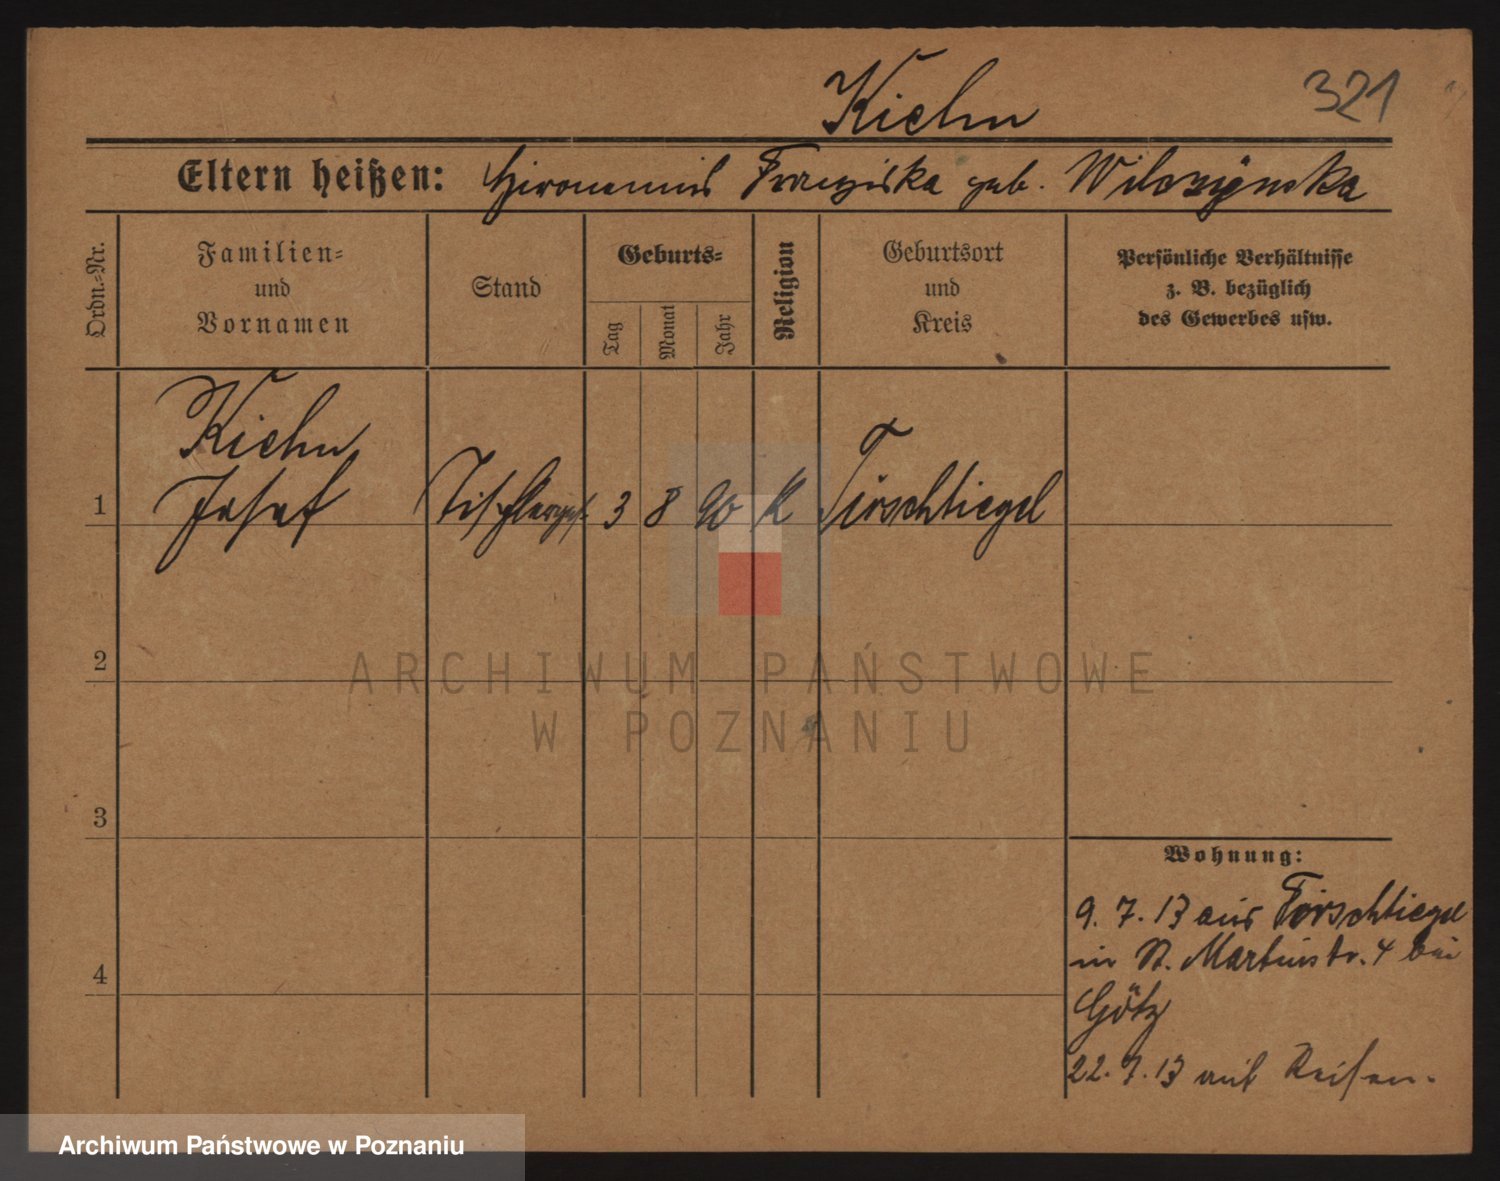 Kiehn 321
Eltern heißen: Hieronimus Franziska geb. Wilczynska
Ordn.-Nr.
Familien-
und
Vornamen
Stand
Geburts-
Tag
Monat
Jahr
Religion
Geburtsort
und
Kreis
Persönliche Verhältnisse
z. B. bezüglich
des Gewerbes usw.
Kiehn
1 Josef Tischlerges. 3 8 90 K Tirschtiegel
2
ARCHIWUM PAŃSTWOWE
W POZNANIU
3
Wohnung:
9. 7. 13 aus Tirschtiegel
in St. Martinstr. 4 bei
4
Götz
22. 7. 13 auf Reisen.
Archiwum Państwowe w Poznaniu